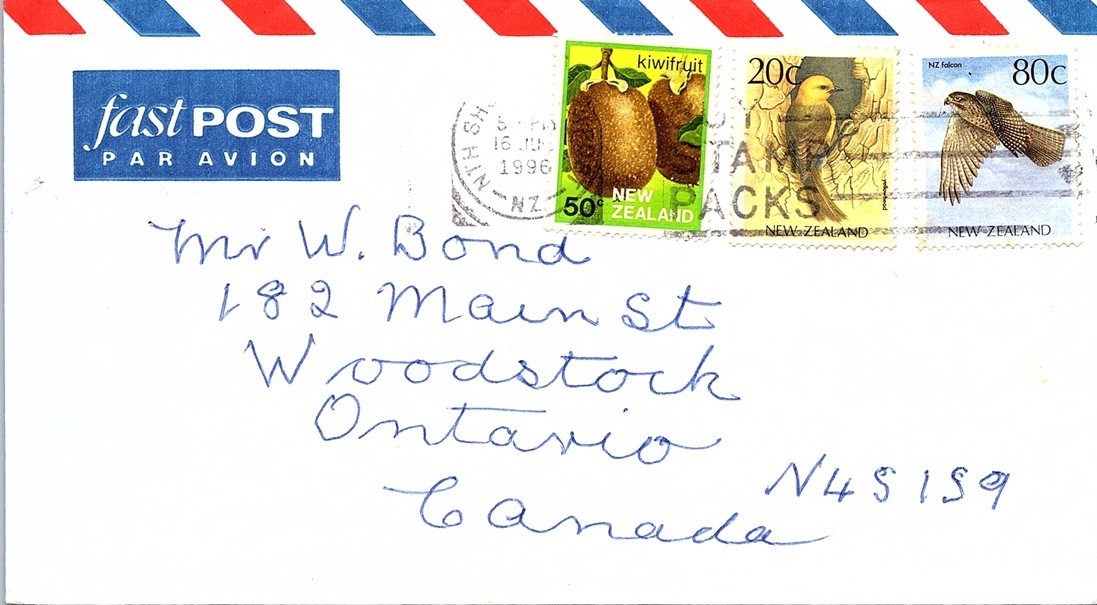 fast POST
PAR AVION
kiwifruit
50c NEW ZEALAND
20c
NEW ZEALAND
NZ falcon
80c
NEW ZEALAND
16 JU
1996
NZ
PACKS
Mr W. Bond
182 Main St
Woodstock
Ontario
N4S 1S9
Canada